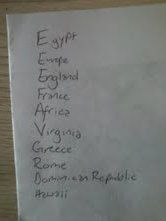 Egypt
Europe
England
France
Africa
Virginia
Greece
Rome
Dominican Republic
Hawaii